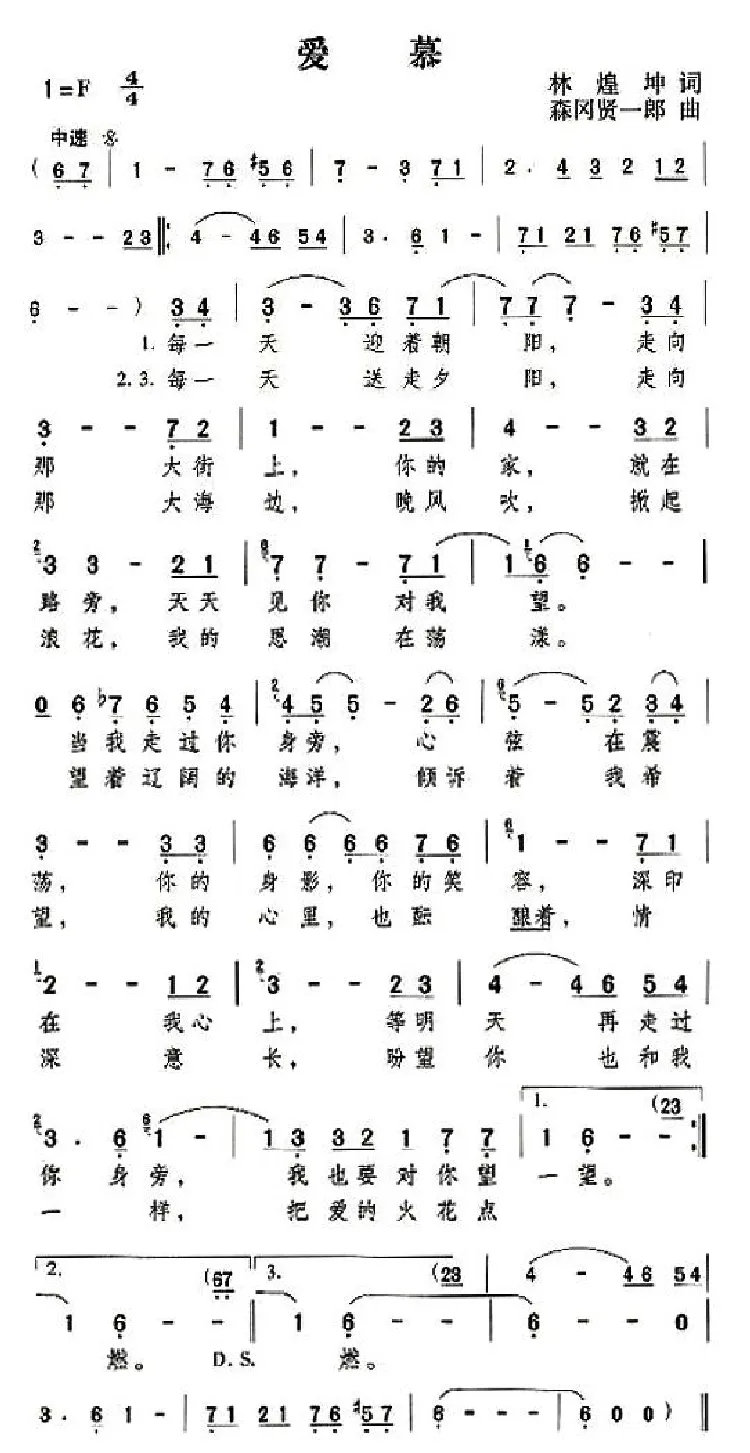 爱 慕
1=F 4/4
林 煌 坤 词
森冈贤一郎 曲
中速
( 6 7 | 1 - 7 6 #5 6 | 7 - 3 7 1 | 2 . 4 3 2 1 2 |
3 - - 2 3 |: 4 - 4 6 5 4 | 3 . 6 1 - | 7 1 2 1 7 6 #5 7 |
6 - - ) 3 4 | 3 - 3 6 7 1 | 7 7 7 - 3 4 |
1. 每一 天 迎着朝 阳, 走向
2.3. 每一 天 送走夕 阳, 走向
3 - - 7 2 | 1 - - 2 3 | 4 - - 3 2 |
那 大街 上, 你的 家, 就在
那 大海 边, 晚风 吹, 掀起
2 3 3 - 2 1 | 6 7 7 - 7 1 | 1 1 6 6 - - |
路旁, 天天 见你 对我 望。
浪花, 我的 思潮 在荡 漾。
0 6 b7 6 5 4 | 2 4 5 5 - 2 6 | 6 5 - 5 2 3 4 |
当我走过你 身旁, 心 弦 在震
望着辽阔的 海洋, 倾诉 着 我希
3 - - 3 3 | 6 6 6 6 7 6 | 6 1 - - 7 1 |
荡, 你的 身影, 你的笑 容, 深印
望, 我的 心里, 也酝 酿着, 情
1 2 - - 1 2 | 2 3 - - 2 3 | 4 - 4 6 5 4 |
在 我心 上, 等明 天 再走过
深 意 长, 盼望 你 也和我
2 3 . 6 6 1 - | 1 3 3 2 1 7 7 | 1. 1 6 - - (23 :|
你 身旁, 我也要对你望 一望。
一 样, 把爱的火花点
2. (67 3. (23 | 4 - 4 6 5 4
1 6 - - | 1 6 - - | 6 - - 0 |
燃。 D.S. 燃。
3 . 6 1 - | 7 1 2 1 7 6 #5 7 | 6 - - - | 6 0 0 ) ||